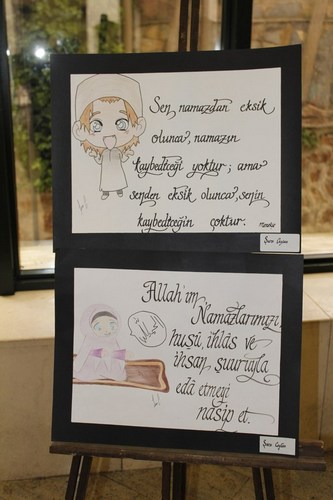 Sen, namazdan eksik
olunca, namazın
kaybedeceği yoktur; ama
senden eksik olunca, senin
kaybedeceğin çoktur.
Allah'ım
Namazlarımızı,
huşû, ihlâs ve
ihsan şuuruyla
edâ etmeyi
nasip et.